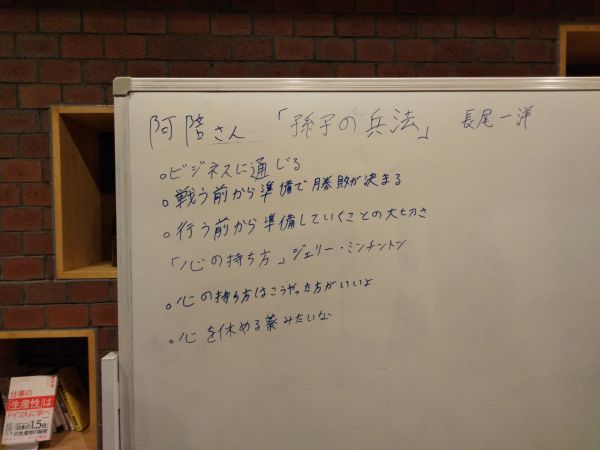 阿部さん 「孫子の兵法」 長尾一洋
。ビジネスに通じる
。戦う前から準備で勝敗が決まる
。行う前から準備していくことの大切さ
「心の持ち方」ジェリー・ミンチントン
。心の持ち方はこうやった方がいいよ
。心を休める薬みたいな
仕事の
「生産性」は
ドイツ人に学べ
「日本の1.5倍」
の生産性の秘密